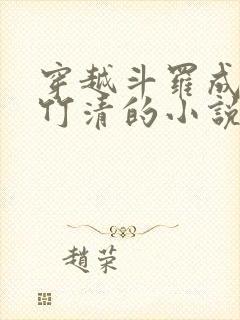 穿越斗羅成
竹清的小說
趙荣